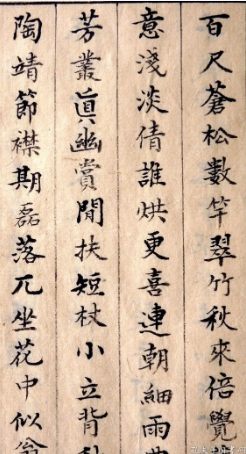 百尺蒼松數竿翠竹秋來倍覺
意淺淡倩誰烘更喜連朝細雨
芳叢眞幽賞閒扶短杖小立背
陶靖節襟期磊落兀坐花中似